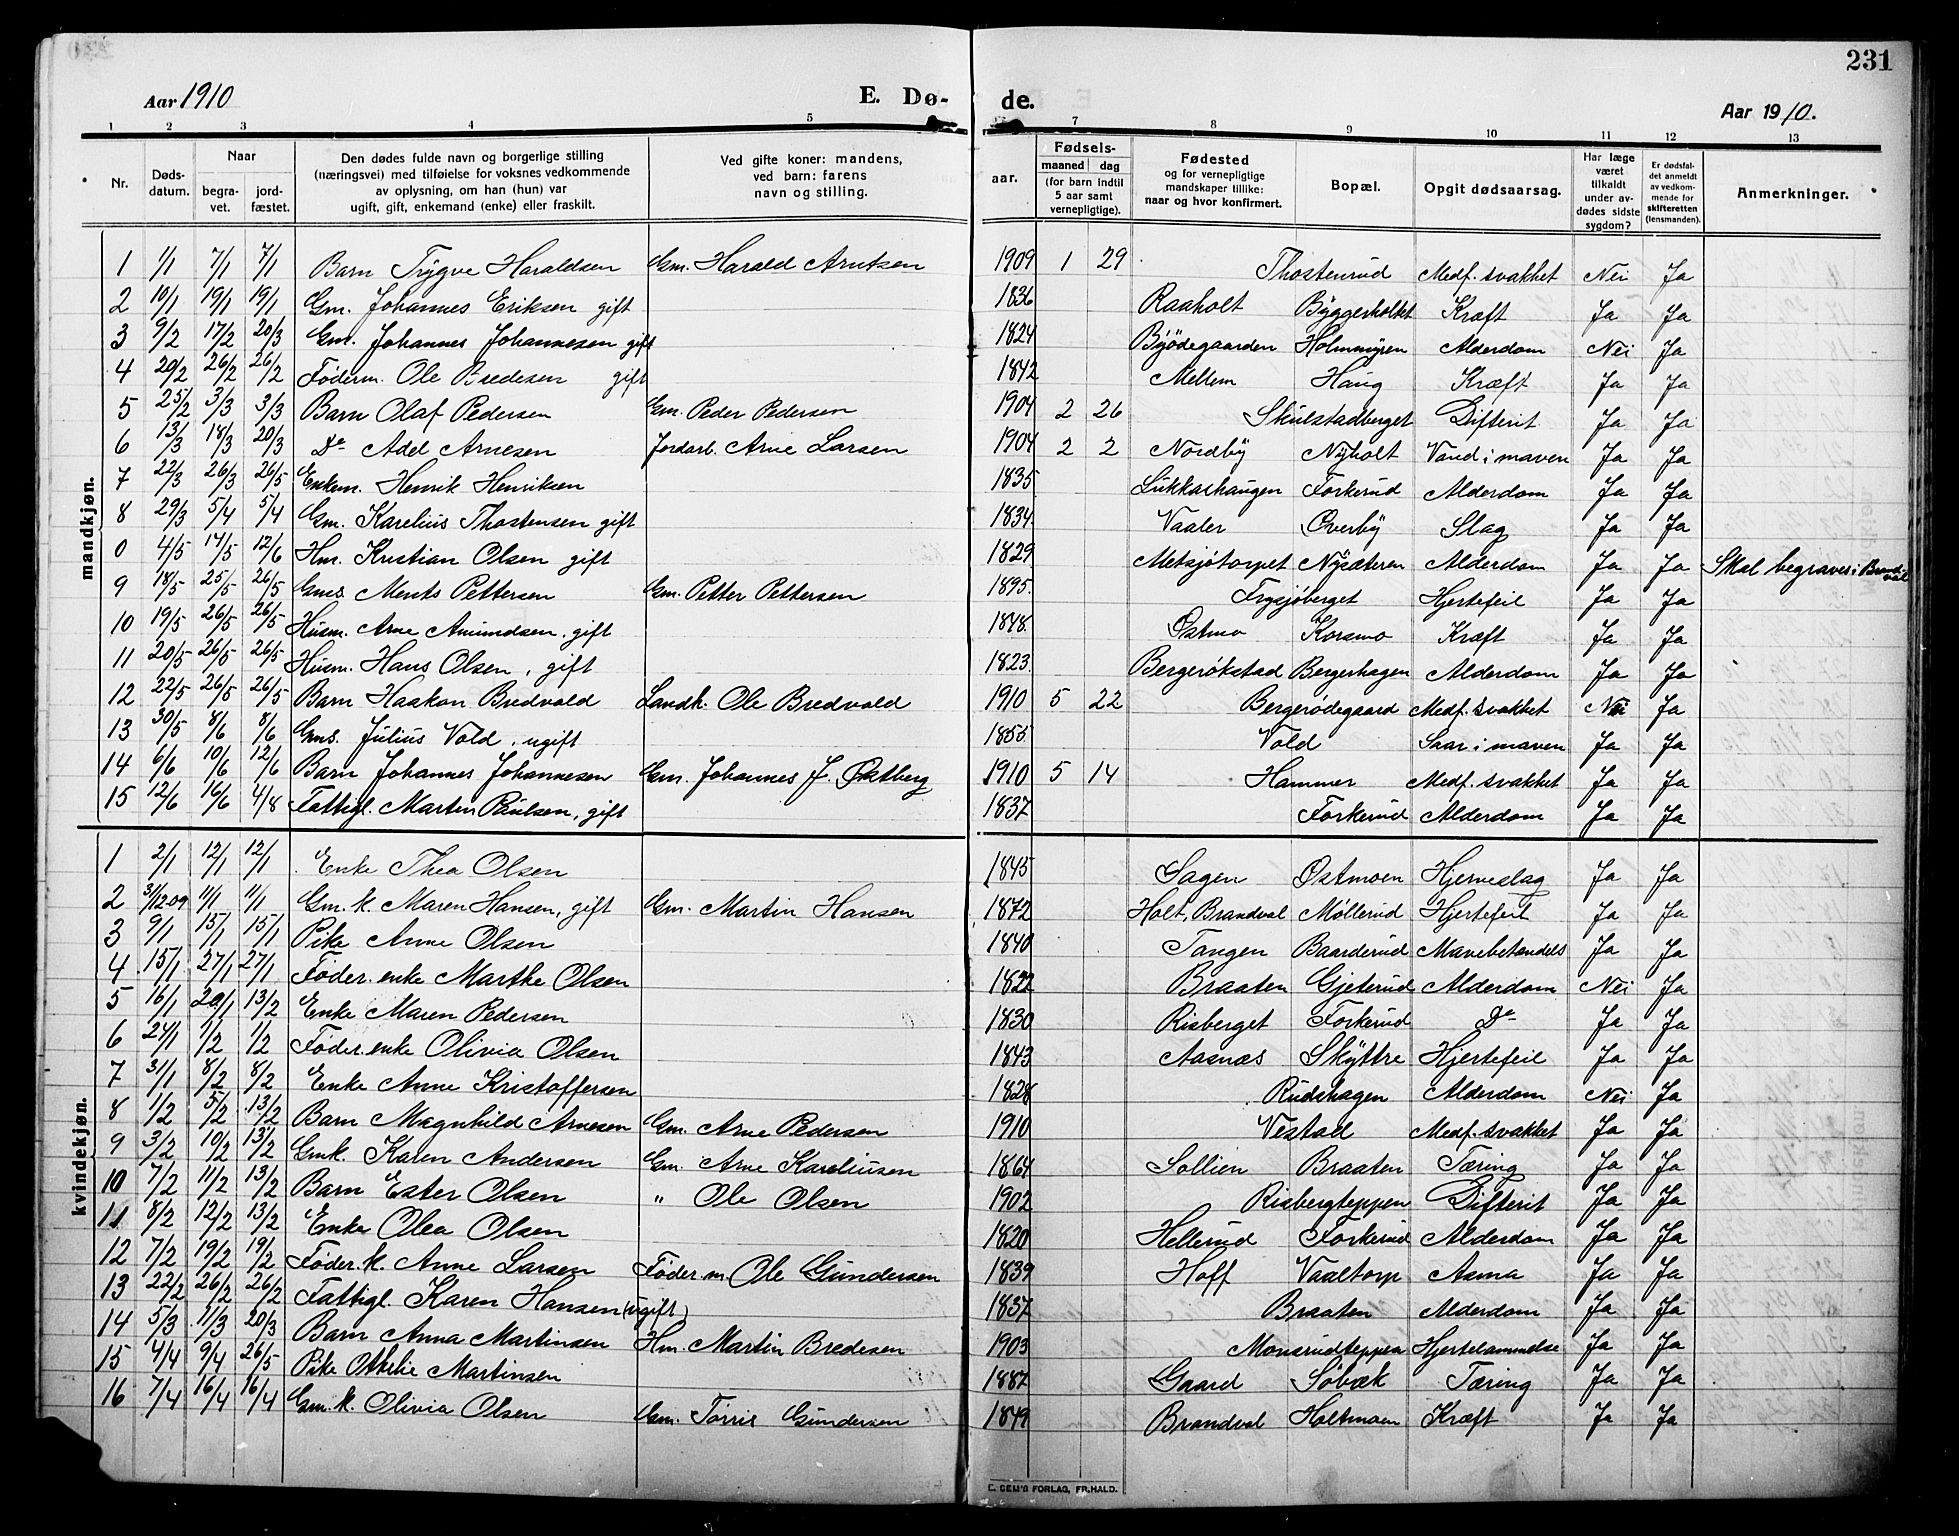 231
Aar 1910
E. Dø-
de.
Aar 1910.
1 2 3 4 5 7 8 9 10 11 12 13
Nr.
Døds-
datum.
Naar
begra-
vet.
jord-
fæstet.
Den dødes fulde navn og borgerlige stilling
(næringsvei) med tilføielse for voksnes vedkommende
av oplysning, om han (hun) var
ugift, gift, enkemand (enke) eller fraskilt.
Ved gifte koner: mandens,
ved barn: farens
navn og stilling.
aar.
Fødsels-
maaned dag
(for barn indtil
5 aar samt
vernepligtige).
Fødested
og for vernepligtige
mandskaper tillike:
naar og hvor konfirmert.
Bopæl.
Opgit dødsaarsag.
Har læge
været
tilkaldt
under av-
dødes sidste
sygdom?
Er dødsfal-
det anmeldt
av vedkom-
mende for
skifteretten
(lensmanden).
Anmerkninger.
mandkjøn.
1 1/1 7/1 7/1 Barn Trygve Haraldsen Gm. Harald Arntsen 1909 1 29 Thostenrud Medf. svakhet Nei Ja
2 10/1 19/1 19/1 Gm. Johannes Eriksen gift 1836 Raaholt Byggerholtet Kræft Ja Ja
3 9/2 17/2 20/3 Gm. Johannes Johannesen gift 1824 Byødegaarden Holmmyren Alderdom Nei Ja
4 20/2 26/2 26/2 Føderm. Ole Bredesen gift 1842 Mellem Haug Kræft Ja Ja
5 25/2 3/3 3/3 Barn Olaf Pedersen Gm. Peder Pedersen 1904 2 26 Skulstadberget Difterit Ja Ja
6 13/3 18/3 20/3 Do Adel Arnesen Jordarb. Arne Larsen 1904 2 2 Nordby Nyholt Vand i maven Ja Ja
7 22/3 26/3 26/5 Enkem. Henrik Henriksen 1835 Lukkashaugen Forkerud Alderdom Ja Ja
8 29/3 5/4 5/4 Gm. Karelius Thostensen gift 1834 Vaaler Overby Slag Ja Ja
0 4/5 14/5 12/6 Hm. Kristian Olsen gift 1829 Metsjøtorpet Nysæteren Alderdom Ja Ja Skal begraves i Brandval
9 18/5 25/5 26/5 Gms. Ments Pettersen Gm. Petter Pettersen 1895 Frysjøberget Hjertefeil Ja Ja
10 19/5 26/5 26/5 Husm. Arne Amundsen, gift 1848 Østmo Korsmo Kræft Ja Ja
11 20/5 26/5 26/5 Husm. Hans Olsen, gift 1823 Bergerøkstad Bergerhagen Alderdom Ja Ja
12 22/5 26/5 26/5 Barn Haakon Bredvold Landh. Ole Bredvold 1910 5 22 Bergerødegaard Medf. svakhet Nei Ja
13 30/5 8/6 8/6 Gms. Julius Vold, ugift 1855 Vold Saar i maven Ja Ja
14 6/6 10/6 12/6 Barn Johannes Johannesen Gm. Johannes J. Østberg 1910 5 14 Hammer Medf. svakhet Ja Ja
15 12/6 16/6 4/8 Fattigl. Martin Paulsen, gift 1837 Forkerud Alderdom Ja Ja
kvindekjøn.
1 2/1 12/1 12/1 Enke Thea Olsen 1845 Sagen Østmoen Hjerneslag Ja Ja
2 31/12 09 11/1 11/1 Gm. k. Maren Hansen, gift Gm. Martin Hansen 1872 Holt, Brandval Møllerud Hjertefeil Ja Ja
3 9/1 15/1 15/1 Pike Anne Olsen 1840 Tangen Baarderud Mavebetændels Ja Ja
4 15/1 27/1 27/1 Føder. enke Marthe Olsen 1822 Braaten Gjeterud Alderdom Nei Ja
5 16/1 20/1 13/2 Enke Maren Pedersen 1830 Risberget Forkerud Do Ja Ja
6 24/1 1/2 1/2 Føder. enke Olivia Olsen 1843 Aasnæs Skyttre Hjertefeil Ja Ja
7 31/1 8/2 8/2 Enke Anne Kristoffersen 1828 Rudshagen Alderdom Nei Ja
8 1/2 5/2 13/2 Barn Magnhild Arnesen Gm. Arne Pedersen 1910 Vestad Medf. svakhet Ja Ja
9 3/2 10/2 13/2 Gmk. Karen Andersen Gm. Arne Kareliusen 1864 Sollien Braaten Tæring Ja Ja
10 7/2 11/2 13/2 Barn Ester Olsen " Ole Olsen 1902 Risbergteppen Difterit Ja Ja
11 8/2 12/2 13/2 Enke Olea Olsen 1820 Hellerud Forkerud Alderdom Ja Ja
12 7/2 19/2 19/2 Føder. k. Anne Larsen Føder. m. Ole Gundersen 1839 Hoff Vaaltorp Asma Ja Ja
13 22/2 26/2 26/2 Fattigl. Karen Hansen (ugift) 1837 Braaten Alderdom Ja Ja
14 5/3 11/3 20/3 Barn Anna Martinsen Hm. Martin Bredesen 1903 Monsrudteppen Hjertelammelse Ja Ja
15 4/4 9/4 26/5 Pike Othilie Martinsen 1887 Gaard Søbæk Tæring Ja Ja
16 7/4 16/4 16/4 Gm. k. Olivia Olsen Gm. Torris Gundersen 1849 Brandval Holtmoen Kræft Ja Ja
E. SEM'S FORLAG, FR.HALD.